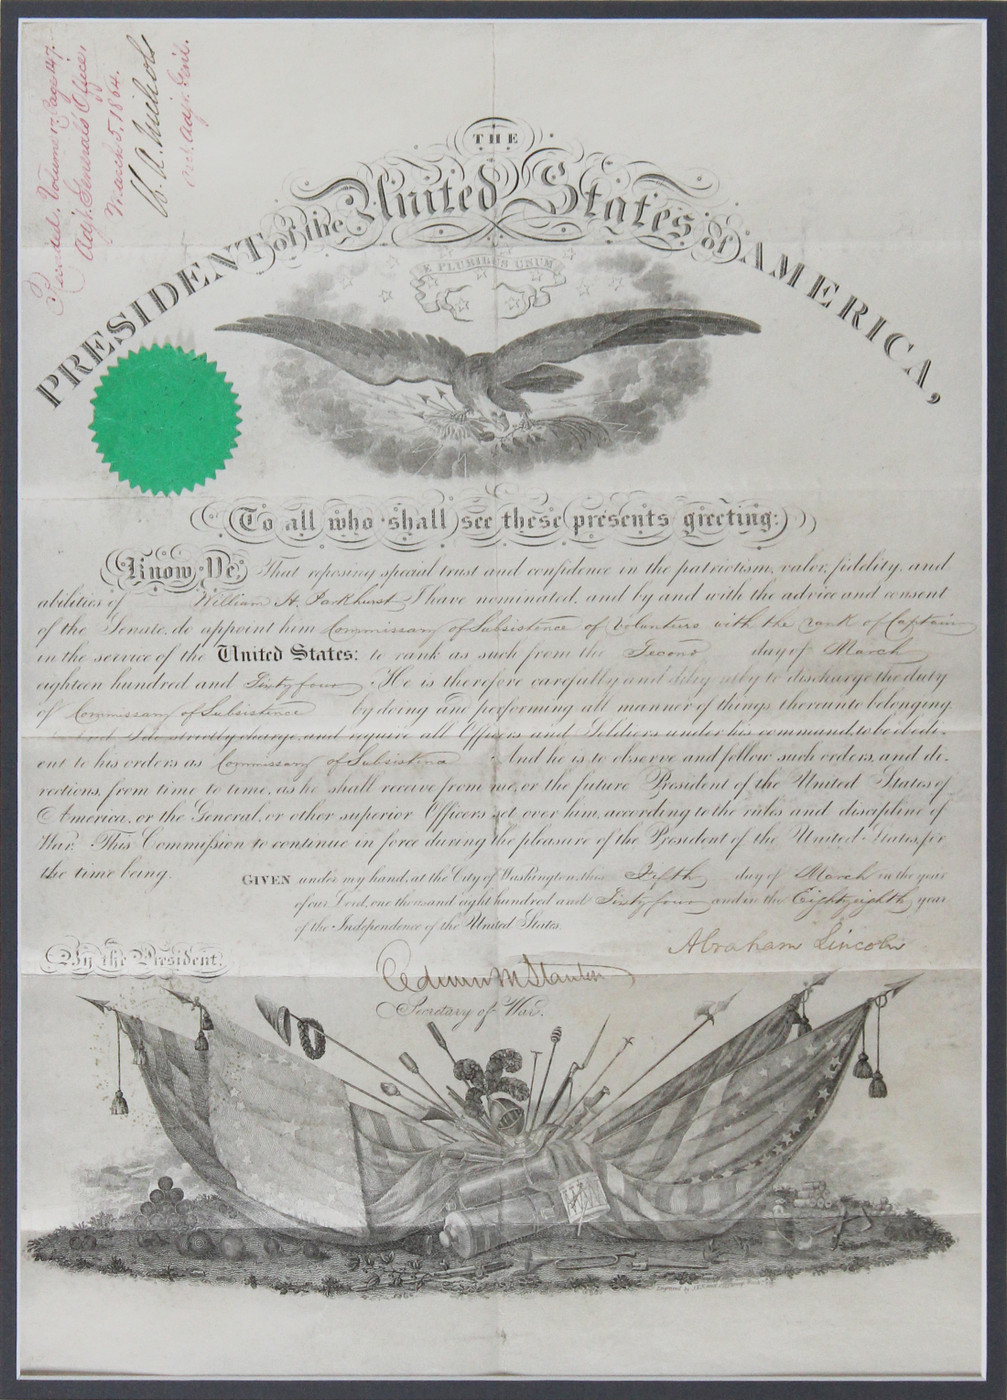 Recorded, Volume 12, Page 147.
Adjt. General's Office,
March 5, 1864.
W. A. Nichols
Adjt. Genl.
THE
PRESIDENT of the United States of AMERICA,
E PLURIBUS UNUM
To all who shall see these presents greeting:
Know Ye, That reposing special trust and confidence in the patriotism, valor, fidelity, and
abilities of William H. Parkhurst I have nominated, and by and with the advice and consent
of the Senate, do appoint him Commissary of Subsistence of Volunteers with the rank of Captain
in the service of the United States: to rank as such from the Second day of March
eighteen hundred and Sixty four He is therefore carefully and diligently to discharge the duty
of Commissary of Subsistence by doing and performing all manner of things thereunto belonging
strictly charge, and require all Officers and Soldiers under his command, to be obedi-
ent to his orders as Commissary of Subsistence And he is to observe and follow such orders, and di-
rections, from time to time, as he shall receive from me, or the future President of the United States of
America, or the General, or other superior Officers set over him, according to the rules and discipline of
War. This Commission to continue in force during the pleasure of the President of the United States, for
the time being.
GIVEN under my hand, at the City of Washington, this Fifth day of March in the year
of our Lord, one thousand eight hundred and Sixty four and in the Eighty eighth year
of the Independence of the United States.
Abraham Lincoln
By the President,
Edwin M Stanton
Secretary of War.